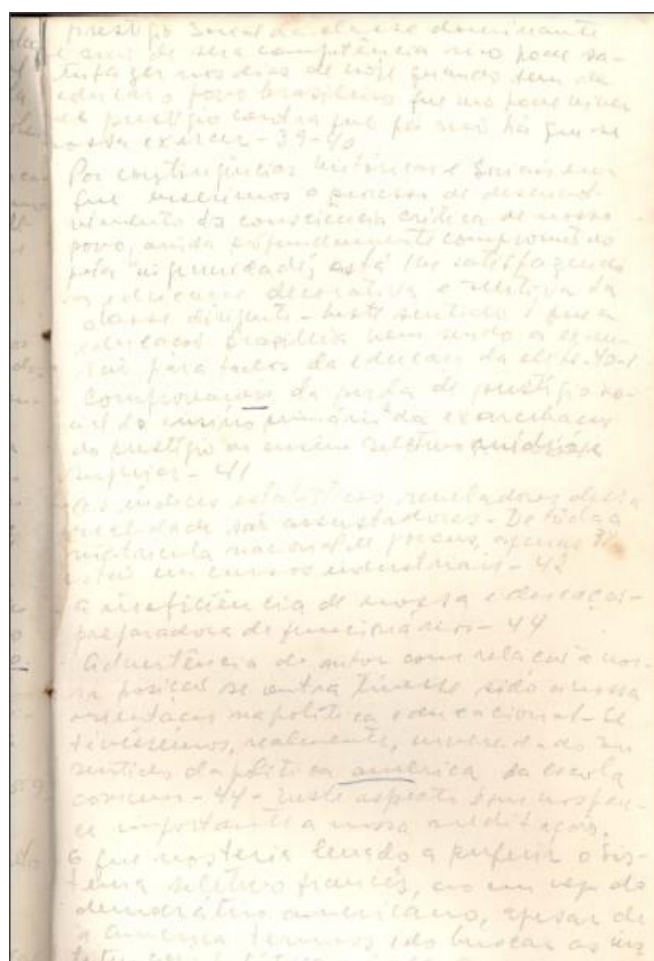 prestígio social da classe dominante
e sim de sua competência não pode sa-
tisfazer nos dias de hoje quando tem de
educar o povo brasileiro que não pode viver
prestígio
exercer - 39-40
Por contingências históricas e sociais em
que inserimos o processo de desenvol-
vimento da consciência crítica de nosso
povo, ainda profundamente comprometido
pela "ingenuidade", está lhe satisfazendo
a educação decorativa e seletiva da
classe dirigente - neste sentido é que a
educação brasileira vem sendo a
para todos da educação da elite - 40-1
Comprovação da perda de prestígio so-
cial do ensino primário e da exacerbação
do prestígio do ensino seletivo
superior - 41
Os índices estatísticos reveladores dessa
realidade são assustadores - De toda a
matrícula nacional de apenas 3%
estão em cursos industriais - 42
a ineficiência de nossa educação -
preparadora de funcionários - 44
Advertência do autor com relação à nos-
sa posição se outra tivesse sido a nossa
orientação na política educacional - Se
tivéssemos, realmente, no
sentido da política américa da escola
comum - 44 - neste aspecto
importante a nossa meditação.
O que nos teria levado a preferir o sis-
tema seletivo francês, ao em vez do
democrático americano, apesar de
a América termos ido buscar as ins-